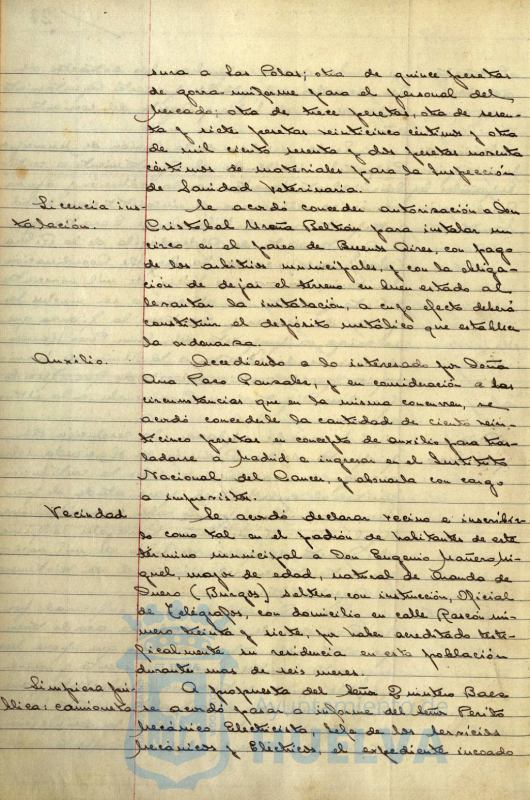 sura a Las Colas; otra de quince pesetas
de gorra uniforme para el personal del
Mercado; otra de trece pesetas, otra de sesen-
ta y siete pesetas veinticinco céntimos y otra
de mil ciento sesenta y dos pesetas noventa
céntimos de materiales para la Inspección
de Sanidad Veterinaria.
Licencia ins-
talación.
Se acordó conceder autorización a Don
Cristobal Ureña Beltrán para instalar un
circo en el paseo de Buenos Aires, con pago
de los arbitrios municipales, y con la obliga-
ción de dejar el terreno en buen estado al
levantar la instalación, a cuyo efecto deberá
constituir el depósito metálico que establece
la ordenanza.
Auxilio.
Accediendo a lo interesado por Doña
Ana Pozo González, y en consideración a las
circunstancias que en la misma concurren, se
acordó concederle la cantidad de ciento vein-
ticinco pesetas en concepto de auxilio para tras-
ladarse a Madrid e ingresar en el Instituto
Nacional del Cancer, y abonarla con cargo
a imprevistos.
Vecindad
Se acordó declarar vecino e inscribir-
lo como tal en el padrón de habitantes de este
término municipal a Don Eugenio Mañero Mi-
guel, mayor de edad, natural de Aranda de
Duero (Burgos) soltero, con instrucción, Oficial
de Telégrafos, con domicilio en calle Rascón nú-
mero treinta y siete, por haber acreditado testi-
ficalmente su residencia en esta población
durante mas de seis meses.
Limpieza pú-
blica: camioneta
A propuesta del Señor Quintero Baez
se acordó pasar a informe del Señor Perito
Mecánico Electricista, Jefe de los Servicios
Mecánicos y Eléctricos, el expediente incoado
Ayuntamiento de
HUELVA